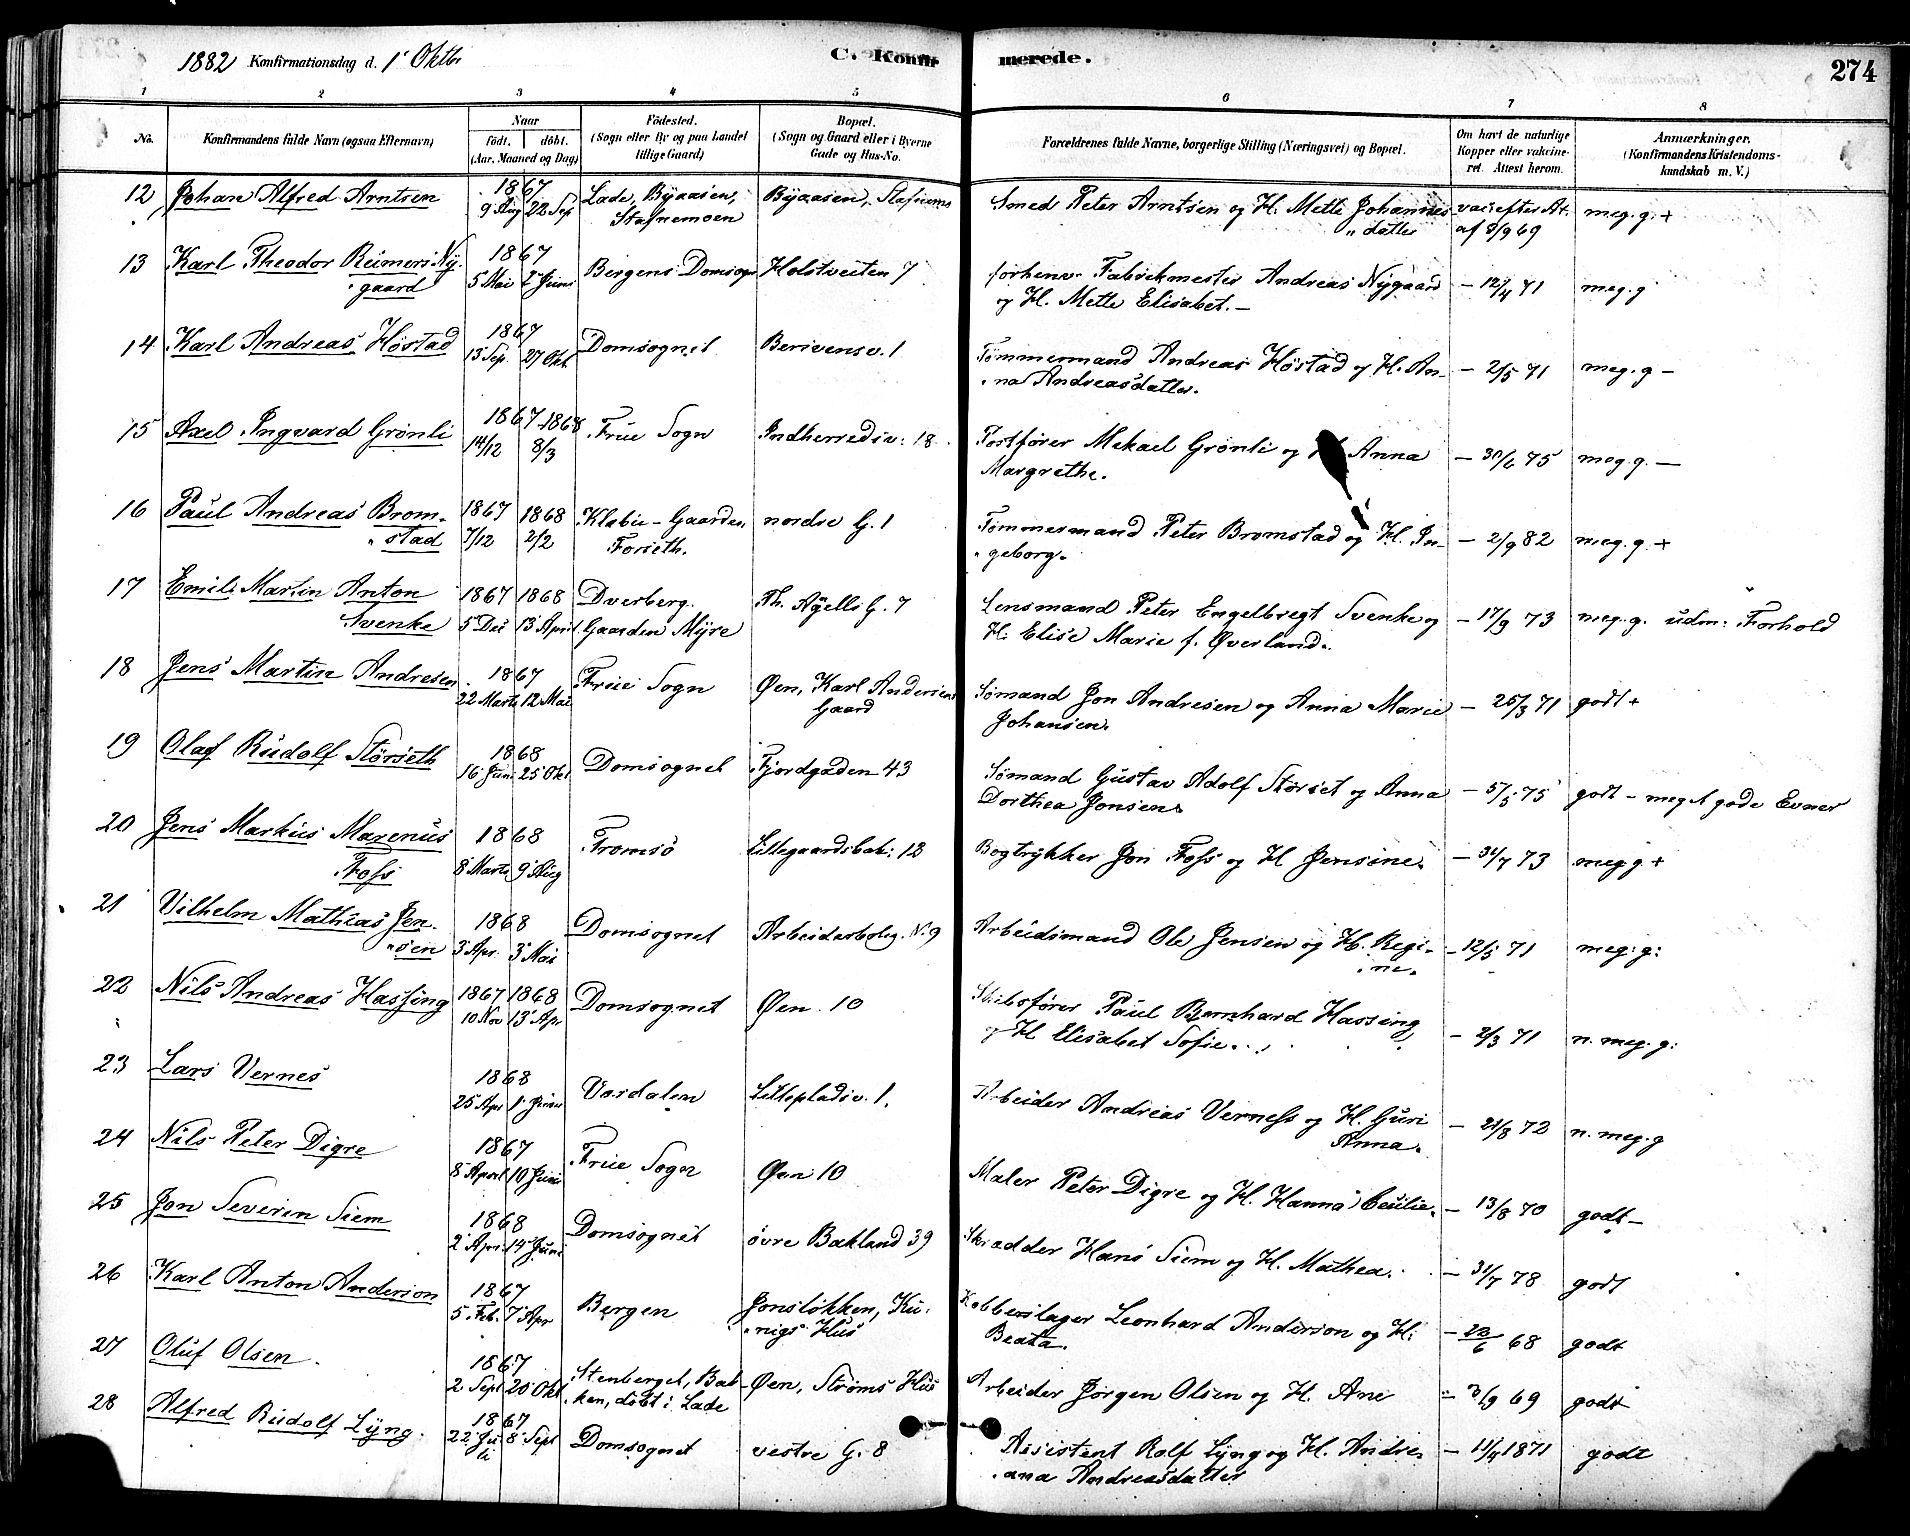 1882 Konfirmationsdag d. 1' Oktbr C. Konfirmerede. 274
1 2 3 4 5 6 7 8
No. Konfirmandens fulde Navn (ogsaa Efternavn) Naar födt. döbt. (Aar, Maaned og Dag) Födested. (Sogn eller By og paa Landet tillige Gaard) Bopæl. (Sogn og Gaard eller i Byerne Gade og Hus-No. Forældrenes fulde Navne, borgerlige Stilling (Næringsvei) og Bopæl. Om havt de naturlige Kopper eller vakcineret. Attest herom. Anmærkninger. (Konfirmandens Kristendomskundskab m. V.)
12 Johan Alfred Arntsen 1867 9 Aug 22 Sep Lade, Byaasen, Stafnemoen Byaasen, Smed Peter Arntsen og H. Mette Johannesdatter vac. efter At. af 3/9 69 meg. g. +
13 Karl Theodor Reimers Nygaard 1867 5 Mai 2 Juni Bergens Domsogn Holstveiten 7 forhenv. Fabrikmester Andreas Nygaard og H. Mette Elisabet. – – 12/4 71 meg. g
14 Karl Andreas Höstad 1867 13 Sep. 27 Okt. Domsognet Berivensv. 1 Tømmermand Andreas Höstad og H. Anna Andreasdatter. – 2/5 71 meg. g –
15 Axel Ingvard Grönli 1867-1868 14/12 8/3 Frue Sogn Indherredsv: 18 Postfører Mekael Grönli og Anna Margrethe. – 30/6 75 meg. g. –
16 Paul Andreas Bromstad 1867 1868 7/12 2/2 Klæbu – Gaarden Forseth. nordre G. 1 Tømmermand Peter Bromstad og H. Ingeborg. – 2/9 82 meg. g. +
17 Emil Martin Anton Svenke 1867 1868 5 Dec 13 April Dverberg. Gaarden Myre Th. Angells G. 7 Lensmand Peter Engelbregt Svenke og H. Elise Marie f. Øverland. – 17/9 73 meg. g. udm: Forhold
18 Jens Martin Andresen 1867 22 Marts 12 Mai Frue Sogn Øen, Karl Andersens Gaard Sømand Jon Andresen og Anna Marie Johansen. – 25/3 71 godt +
19 Olaf Rudolf Störseth 1868 16 Juni 25 Okt Domsognet Fjordgaden 43 Sømand Gustav Adolf Störset og Anna Dorthea Jonsen. – 5/5 75 godt – meget gode Evner
20 Jens Markus Marenus Foss 1868 8 Marts 9 Aug Tromsö Lillegaardsbak: 12 Bogtrykker Jon Foss og H Jensine. – 31/7 73 meg g +
21 Vilhelm Mathias Jensen 1868 3 Apr. 3 Mai Domsognet Arbeiderbolig. No 9 Arbeidsmand Ole Jensen og H. Regine. – 12/5 71 meg: g:
22 Nils Andreas Hassing 1867 1868 10 Nov 13 Apr Domsognet Øen. 10 Skibsfører Paul Bernhard Hassing og H Elisabet Sofie. – 2/3 71 n. meg. g:
23 Lars Vernes 1868 25 Apr 1 Juni Værdalen Lilleplads v. 1. Arbeider Andreas Verness og H. Guri Anna. – 21/8 72 n. meg. g
24 Nils Peter Digre 1867 8 April 10 Juni Frue Sogn Øen 10 Maler Peter Digre og H. Hanna Cecilie. – 13/8 70 godt –
25 Jon Severin Siem 1868 2 Apr. 14 Juni Domsognet övre Bakland 39 Skradder Hans Siem og H. Mathea. – 31/7 78 godt
26 Karl Anton Anderson 1867 5 Feb. 7 Apr Bergen Jonsløkken, Kunigs Hus Kobberslager Leonhard Anderson og H: Beata. – 23/6 68 godt
27 Oluf Olsen 1867 2 Sept 20 Okt Stenberget, Bakken, döbt i Lade Øen, Ströms Hus Arbeider Jørgen Olsen og H. Ane – 3/9 69 godt
28 Alfred Rudolf Lyng. 1867 22 Juli 8 Sept Domsognet vestre G. 8 Assistent Rolf Lyng og H. Andreana Andreasdatter – 11/4 1871 godt